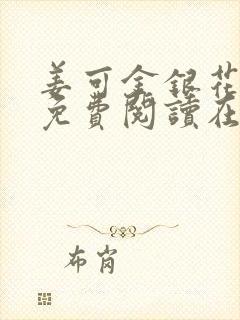 姜可金銀花
免費閱讀在
布肖